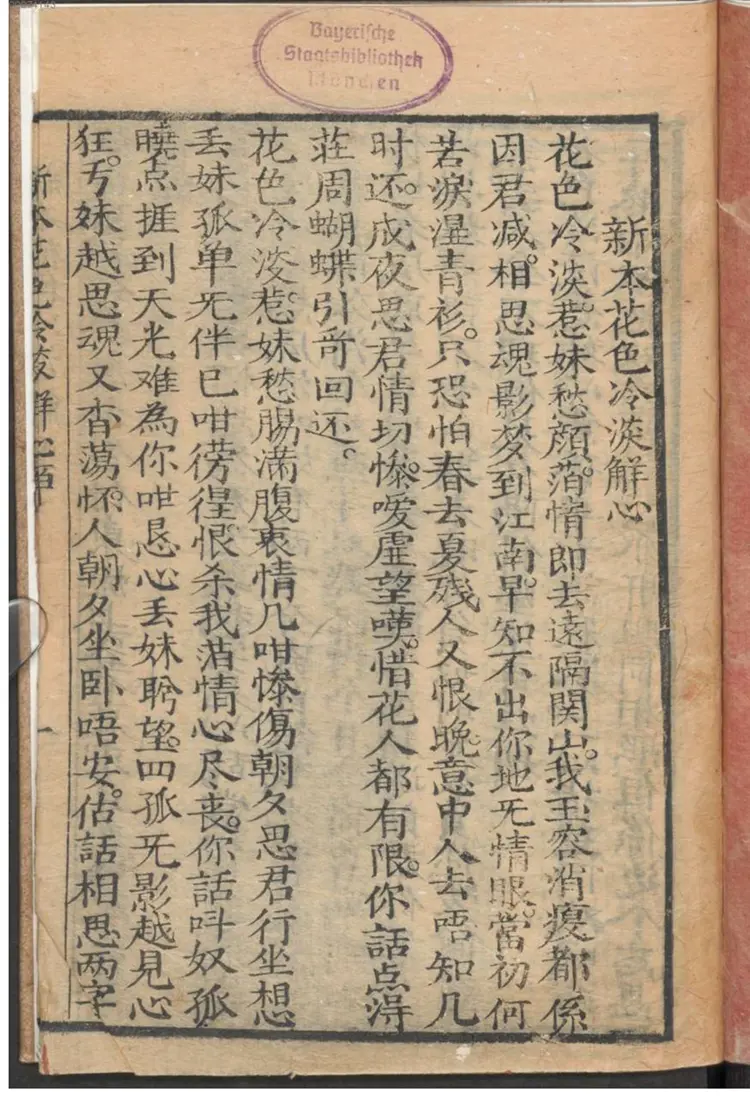 Bayerische
Staatsbibliothek
München
新本花色冷淡解心
花色冷淡。惹妹愁顔。萡情即去遠隔関山。我玉容消瘦都係
因君减。相思魂影梦到江南。早知不出你地旡情眼。當初何
苦淚湿青衫。只恐怕春去夏残人又恨晚意中人去唔知几
时还。成夜思君情切惨。嗳虚望嘆。惜花人都有限。你話点淂
荘周蝴蝶引哥回还。
花色冷淡。惹妹愁腸满腹衷情几咁惨傷朝夕思君行坐想
丢妹孤单旡伴已咁徬徨。恨杀我萡情心尽丧。你話呌奴孤
曉点捱到天光难為你咁恳心丢妹盻望。四孤旡影越見心
狂。亏妹越思魂又杳蕩怀。人朝夕坐卧唔安。估話相思两字
新本花色冷淡解心
一